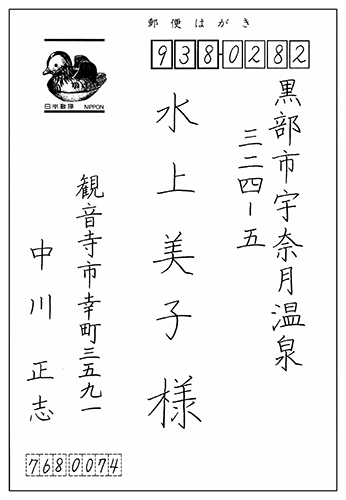 郵便はがき
938-0282
黒部市宇奈月温泉
三二四-五
水上美子様
日本郵便 NIPPON
観音寺市幸町三五九一
中川 正志
7680074